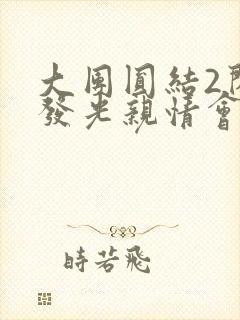 大團圓結2
發光親情會
時若飛